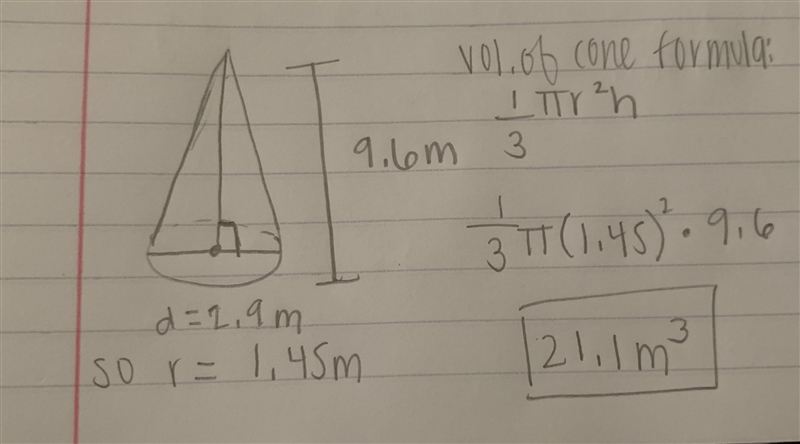 vol. of cone formula:
1/3 πr²h
9.6m
1/3 π(1.45)² · 9.6
d=2.9m
so r = 1.45m
21.1m³